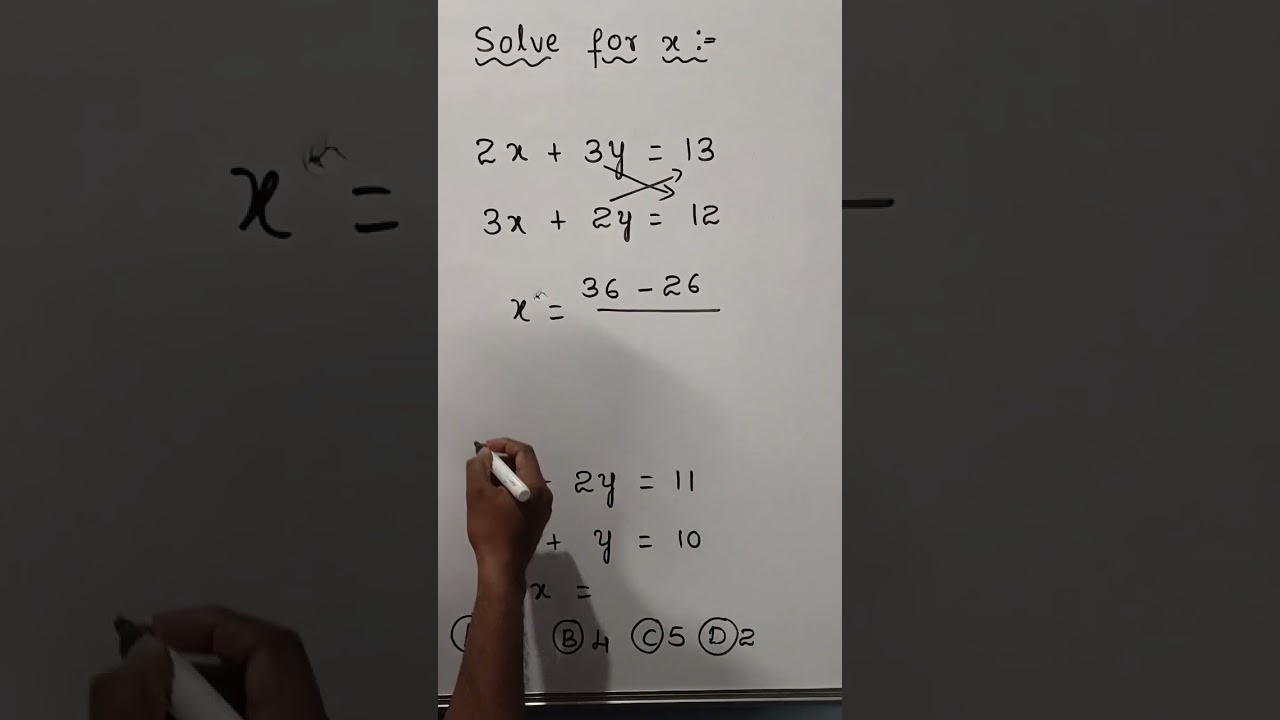 Solve for x :-
2x + 3y = 13
3x + 2y = 12
x = 36 - 26
2y = 11
+ y = 10
x =
B 4 C 5 D 2